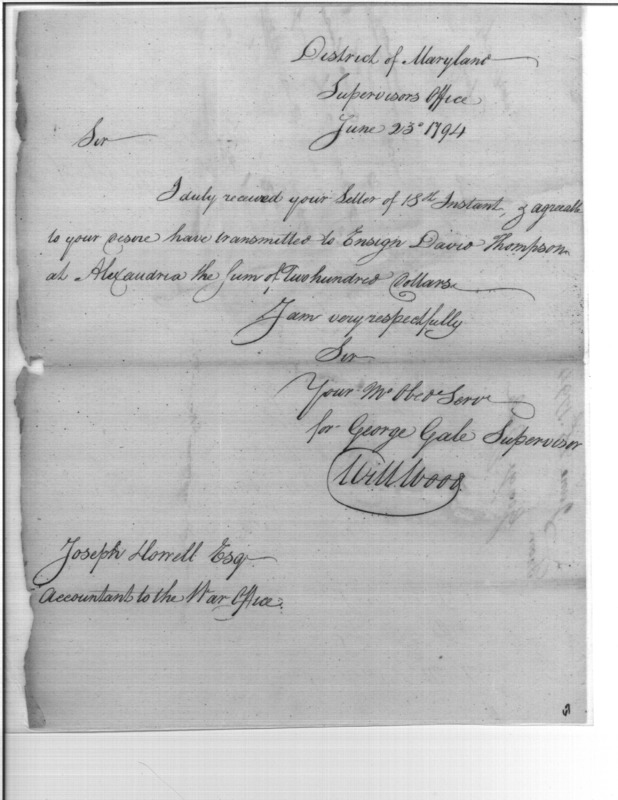 District of Maryland
Supervisors Office
June 23d 1794
Sir
I duly received your Letter of 18th Instant, & agreeable
to your desire have transmitted to Ensign David Thompson
at Alexandria the Sum of Two hundred Dollars.
I am very respectfully
Sir
Your Mo Obed Serv
for George Gale Supervisor
Will Wood
Joseph Howell Esqr
Accountant to the War Office.